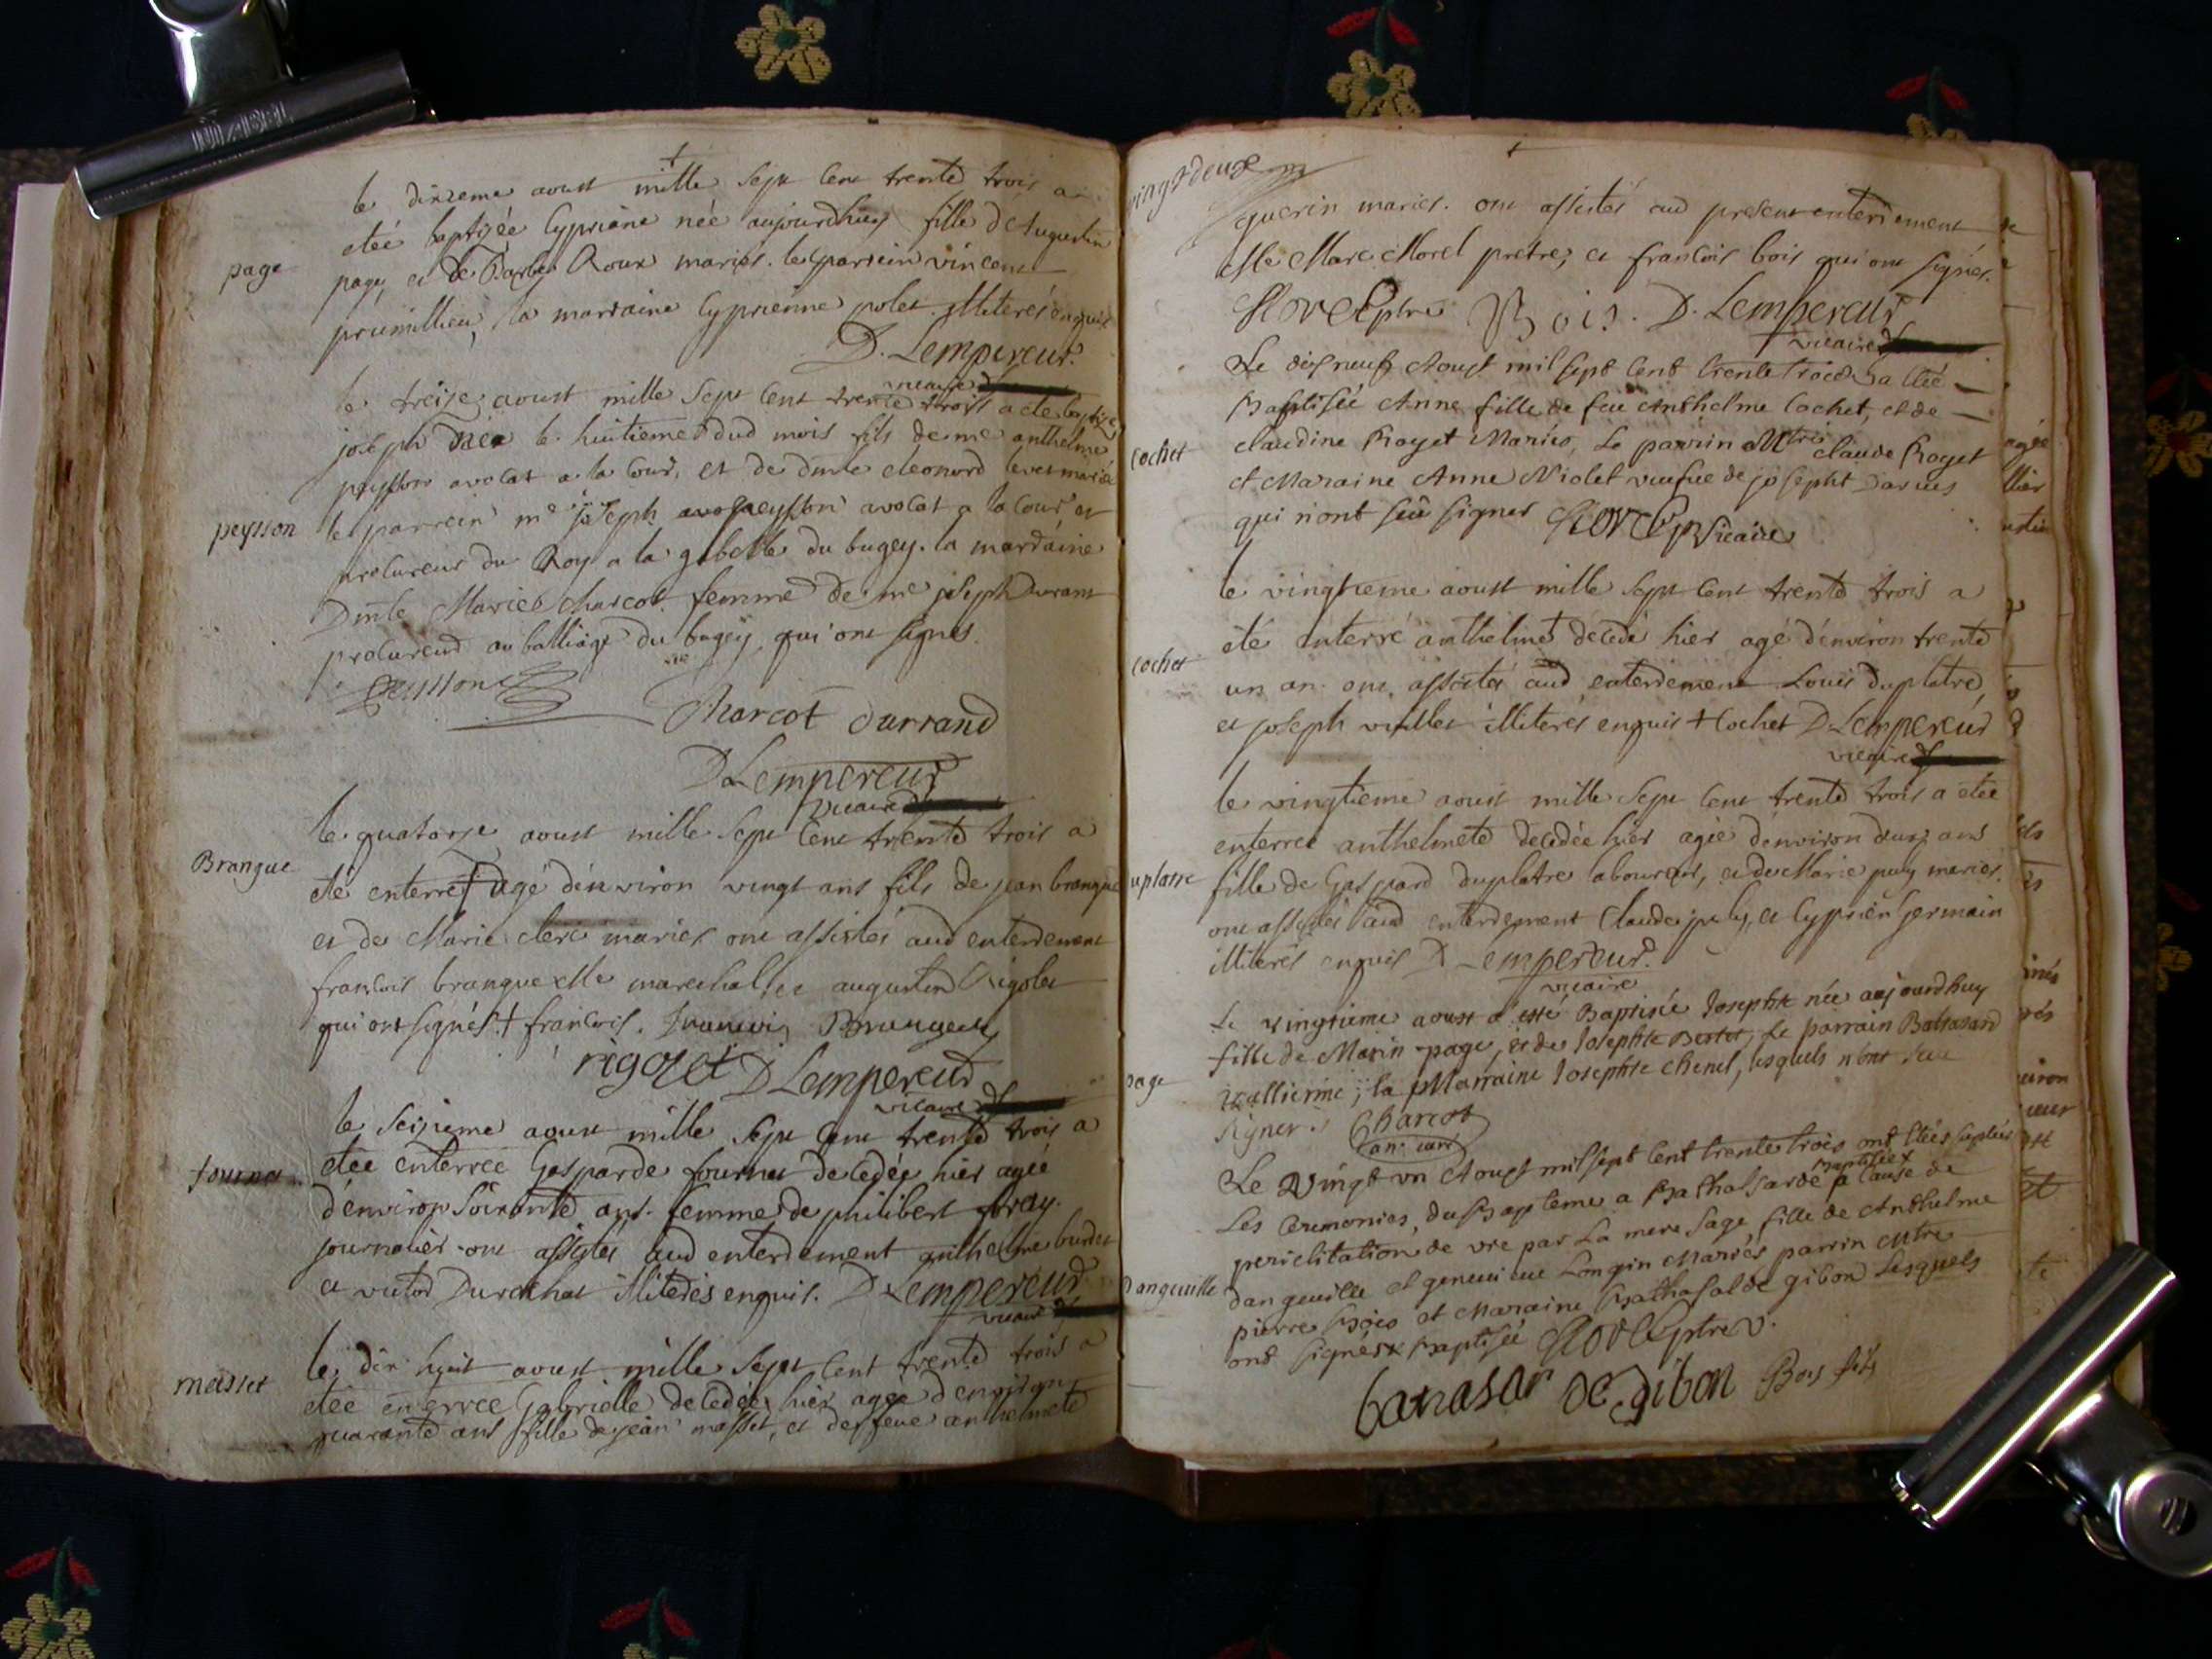 le dixieme aoust mille sept cent trente trois a
eteé baptizée Cypriane née aujourdhuy fille d'Augustin
page
page, et de Barbe Roux mariés. le parrein vincent
prumillieu, la marraine Cyprienne polet illiterés enquis
D. Lempereur
vicaire
le treize aoust mille sept cent trente trois a eté baptisé
joseph né le huitieme dud mois fils de me anthelme
peysson avocat a la Cour, et de dmlle eleonord mariés
peysson
le parrein me joseph peysson avocat a la Cour et
procureur du Roy a la gabelle du bugey. la marraine
Dmlle Marie Charcot femme de me joseph Durant
procureur au balliage du bugey, qui ont signés
Peysson
Charcot Durrand
D Lempereur
vicaire
le quatorze aoust mille sept cent trente trois a
Brangue
eté enterré † agé d'environ vingt ans fils de jean brangue
et de Marie clerc mariés ont assistés aud enterrement
francois brangue Me marechal, et augustin Rigolet
qui ont signés. † francois. francois Brangue
rigolet D Lempereur
vicaire
le seizieme aoust mille sept cent trente trois a
fournet
etée enterrée Gasparde fournet decedée hier agée
d'environ soixante ans. femme de philibert gray
journalier ont assistés aud enterrement anthelme burdet
et victor Durochat illiterés enquis. D Lempereur
vicaire
le dix huit aoust mille sept cent trente trois a
masset
etée enterrée Gabrielle decedée hier agée d'environ
quarante ans fille de jean masset, et de feue anthelmete
vingt deux
guerin mariés. ont assistés aud present enterrement
Me Marc Morel pretre, et francois bois qui ont signés.
Morel ptre Bois. D. Lempereur
vicaire
Le dix neuf Aoust mil sept cent trente trois a eteé
Baptisée Anne fille de feu Anthelme Cochet, et de
cochet
claudine Royet Mariés, Le parrin Mtre claude Royet
et Maraine Anne Violet veufue de josepht
qui n'ont seû signer Morel p vicaire
le vingtieme aoust mille sept cent trente trois a
eté enterré anthelme decedé hier agé d'environ trente
cochet
un an ont assistés aud enterrement Louis duplatre,
et joseph illiterés enquis † Cochet D Lempereur
vicaire
le vingtieme aoust mille sept cent trente trois a etée
enterrée anthelmete decedée hier agée d'environ deux ans
uplatre
fille de Gaspard duplatre laboureur, et de Marie puly mariés.
ont assistés aud enterrement Claude puly, et Cyprien germain
illiterés enquis D Lempereur.
vicaire
Le vingtieme aoust a esté Baptisée Josephte née aujourdhuy
fille de Marin page, et de Josephte Bertet, Le parrain Baltazard
page
vallierme; la Marraine Josephte Chenel, lesquels n'ont sceu
signer. Charcot
an. curé
Le vingt un Aoust mil sept cent trente trois ont etées supleés
Les Ceremonies, du Bapteme a Bathalsarde baptisée x a cause de
periclitation de vie par La mere sage fille de Anthelme
Dangeuille
dangeuille et geneuieue Longin Mariés parrin Mtre
pierre Bois et Maraine Bathasalde gibon Lesquels
ont signés x baptisée Morel ptre v.
batrasar de gibon Bois fils